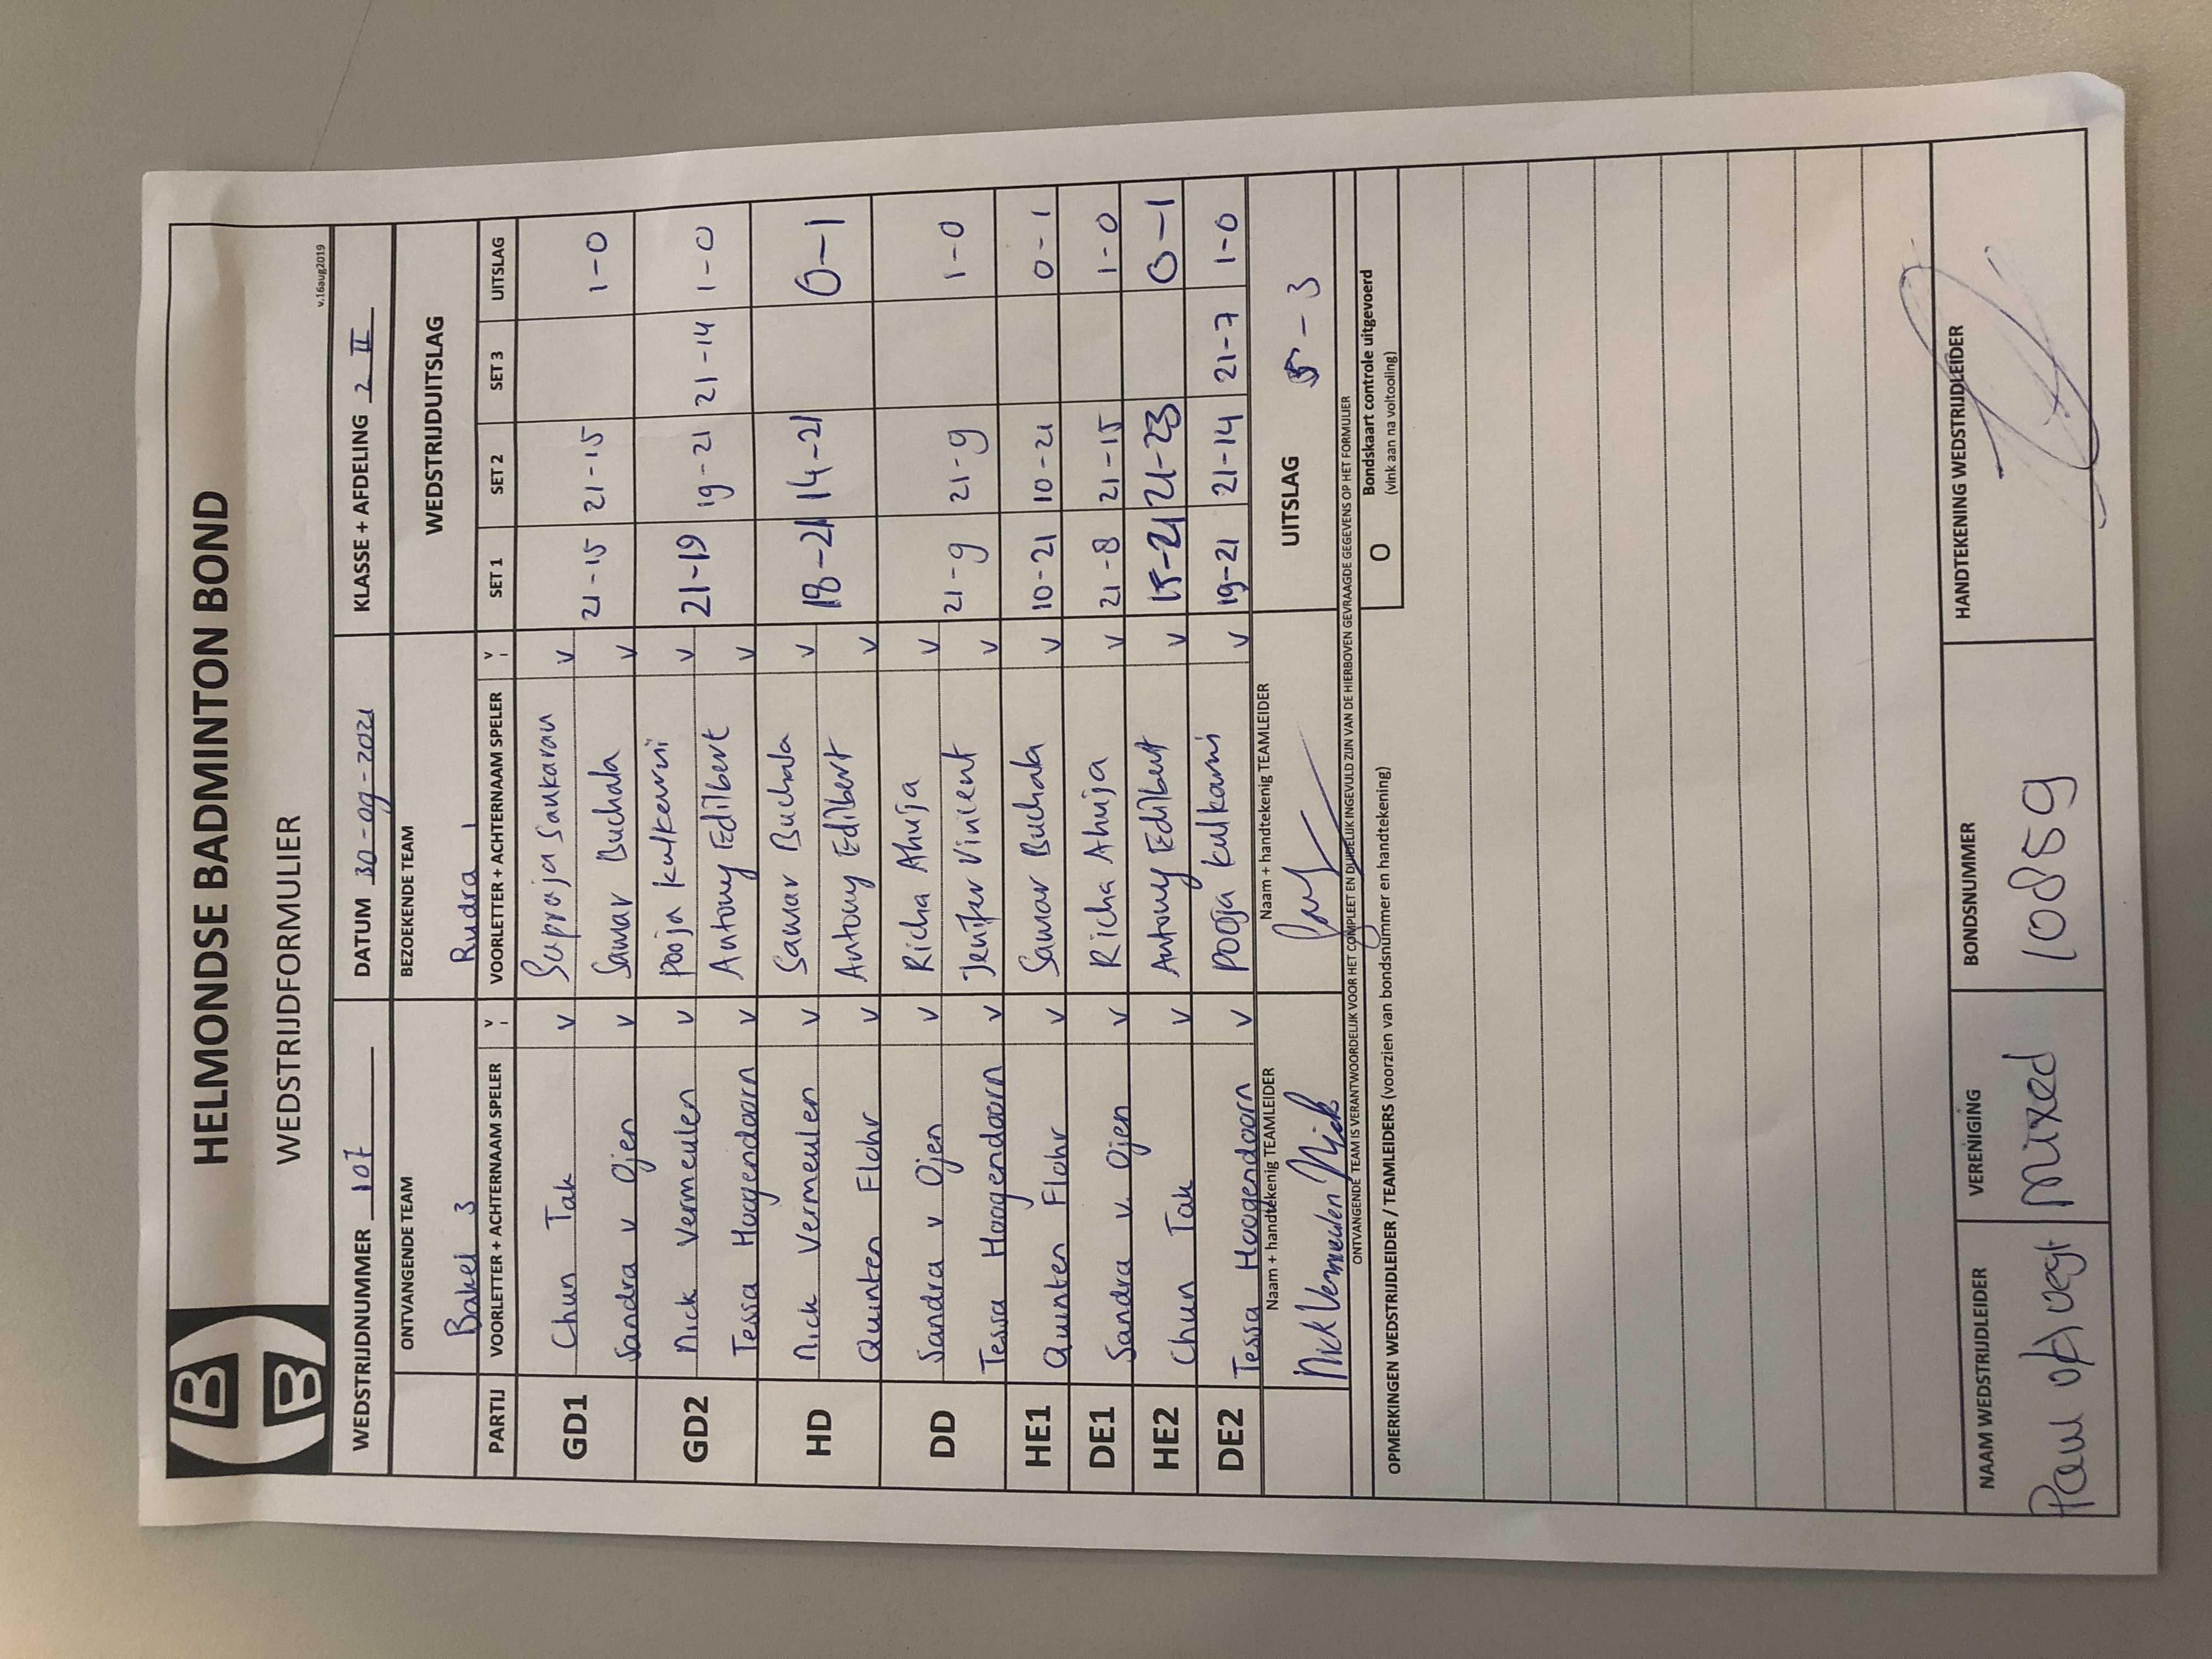 HELMONDSE BADMINTON BOND
WEDSTRIJDFORMULIER
v.16aug2019
WEDSTRIJDNUMMER 107 DATUM 30-09-2021 KLASSE + AFDELING 2 II
ONTVANGENDE TEAM BEZOEKENDE TEAM WEDSTRIJDUITSLAG
Bakel 3 Rudra 1
PARTIJ VOORLETTER + ACHTERNAAM SPELER V VOORLETTER + ACHTERNAAM SPELER V SET 1 SET 2 SET 3 UITSLAG
GD1 Chun Tak V Supraja Sankaran V
Sandra v Ojen V Samar Buchala V 21-15 21-15 1-0
GD2 Nick Vermeulen V Pooja Kulkarni V 21-19 19-21 21-14 1-0
Tessa Hoogendoorn V Antony Edilbert V
HD Nick Vermeulen V Samar Buchala V 18-21 14-21 0-1
Quinten Flohr V Antony Edilbert V
DD Sandra v Ojen V Richa Ahuja V
Tessa Hoogendoorn V Jenifer Vincent V 21-9 21-9 1-0
HE1 Quinten Flohr V Samar Buchala V 10-21 10-21 0-1
DE1 Sandra v. Ojen V Richa Ahuja V 21-8 21-15 1-0
HE2 Chun Tak V Antony Edilbert V 15-21 21-23 0-1
DE2 Tessa Hoogendoorn V Pooja Kulkarni V 19-21 21-14 21-7 1-0
Naam + handtekenig TEAMLEIDER Naam + handtekenig TEAMLEIDER
Nick Vermeulen UITSLAG 5-3
ONTVANGENDE TEAM IS VERANTWOORDELIJK VOOR HET COMPLEET EN DUIDELIJK INGEVULD ZIJN VAN DE HIERBOVEN GEVRAAGDE GEGEVENS OP HET FORMULIER
OPMERKINGEN WEDSTRIJDLEIDER / TEAMLEIDERS (voorzien van bondsnummer en handtekening)
O Bondskaart controle uitgevoerd
(vink aan na voltooling)
NAAM WEDSTRIJDLEIDER VERENIGING BONDSNUMMER HANDTEKENING WEDSTRIJDLEIDER
Paul vd Vegt Mixed 10859